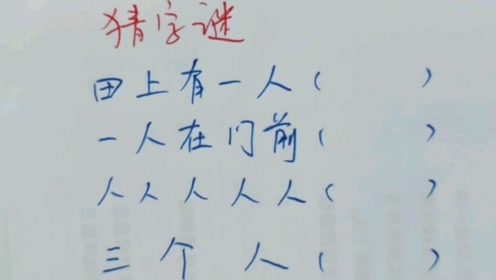 猜字谜
田上有一人（ ）
一人在门前（ ）
人人人人人（ ）
三个人（ ）